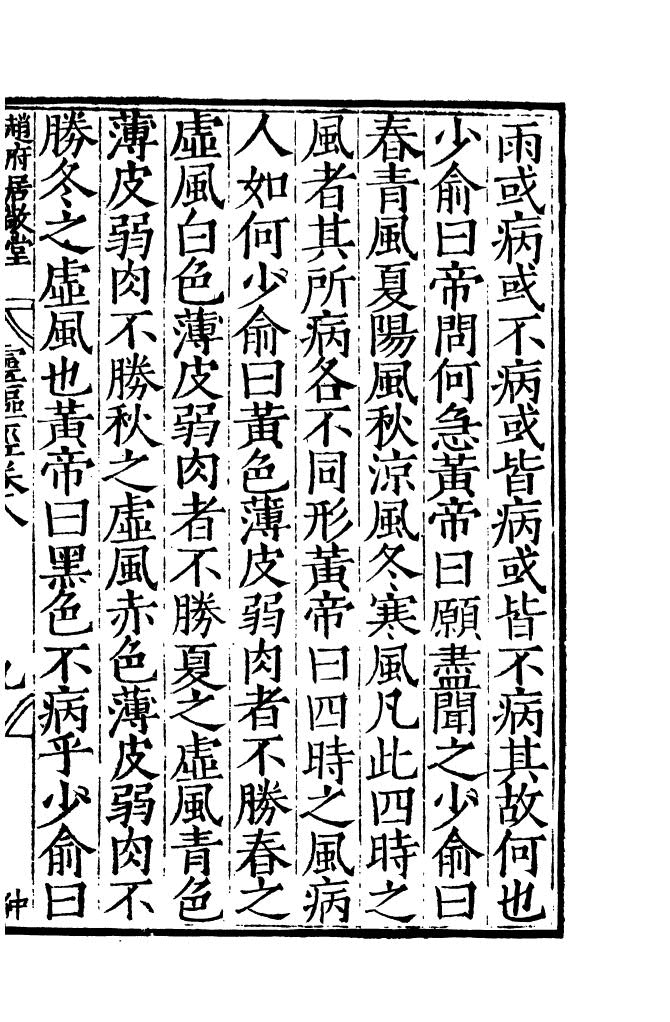 雨或病或不病或皆病或皆不病其故何也
少俞曰帝問何急黃帝曰願盡聞之少俞曰
春青風夏陽風秋涼風冬寒風凡此四時之
風者其所病各不同形黃帝曰四時之風病
人如何少俞曰黃色薄皮弱肉者不勝春之
虛風白色薄皮弱肉者不勝夏之虛風青色
薄皮弱肉不勝秋之虛風赤色薄皮弱肉不
勝冬之虛風也黃帝曰黑色不病乎少俞曰
趙府居敬堂 靈樞經卷八 九